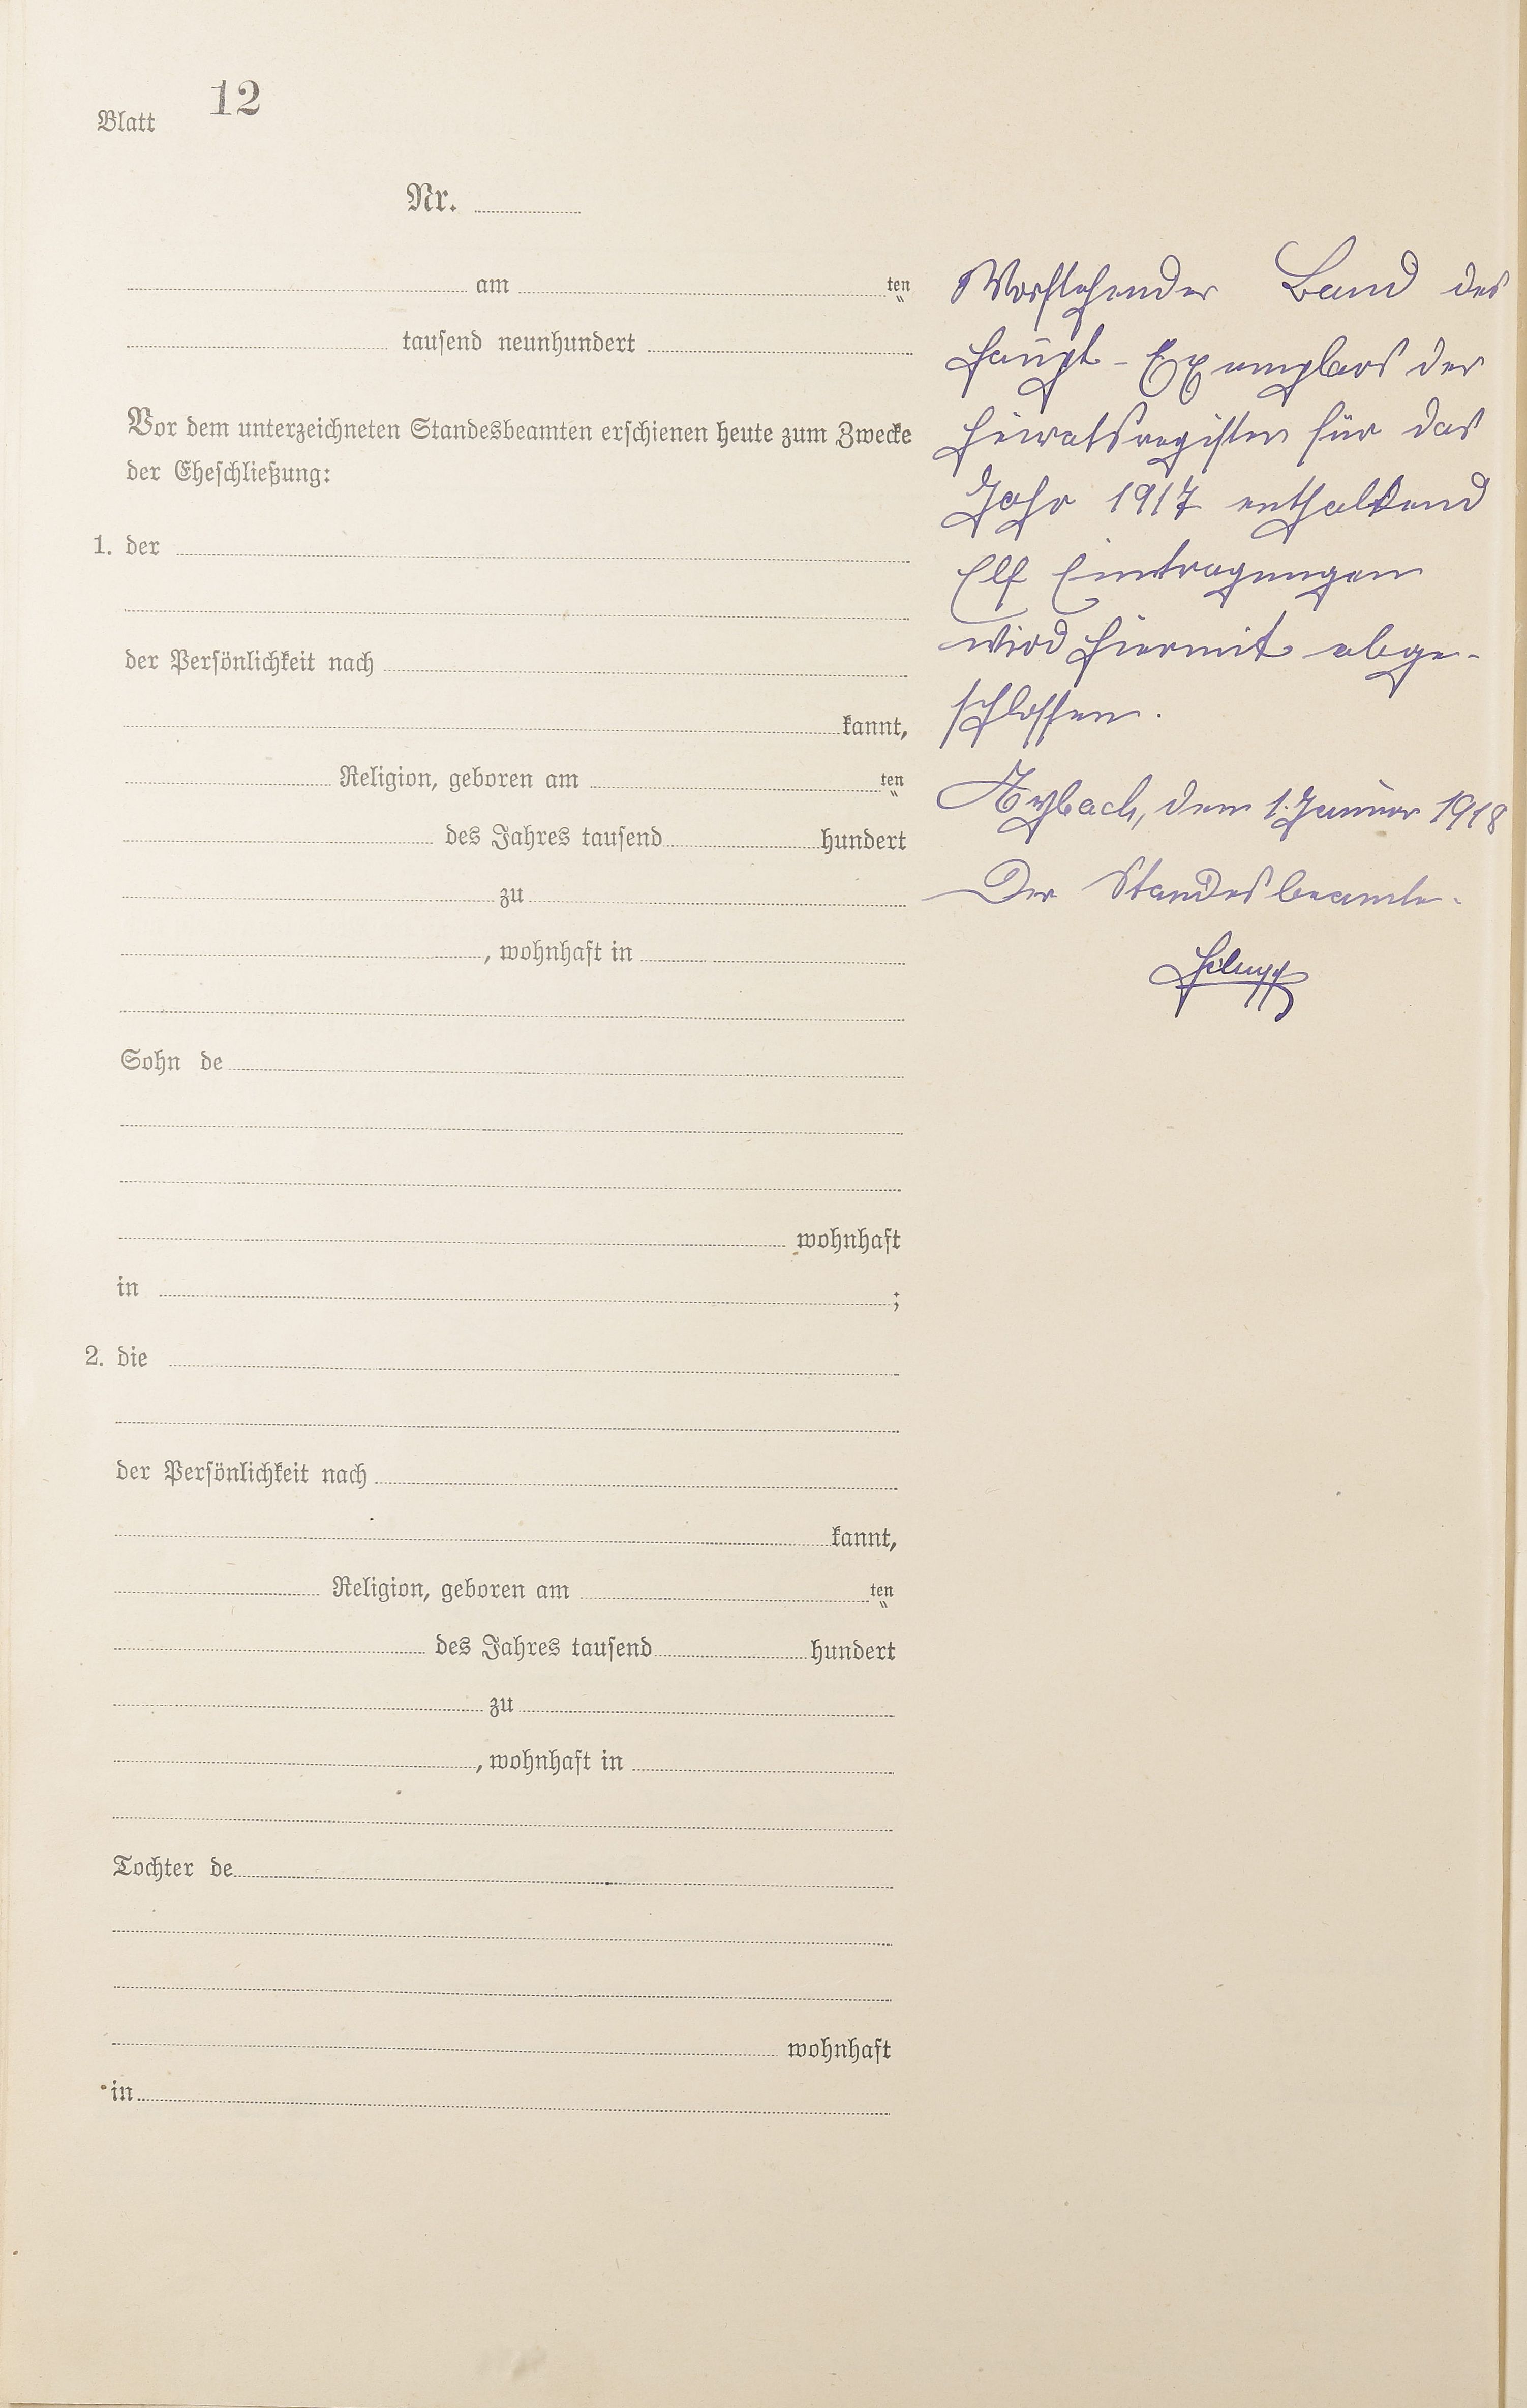 Blatt 12
Nr.
am ten
tausend neunhundert
Vor dem unterzeichneten Standesbeamten erschienen heute zum Zwecke
der Eheschließung:
1. der
der Persönlichkeit nach
kannt,
Religion, geboren am ten
des Jahres tausend hundert
zu
, wohnhaft in
Sohn de
wohnhaft
in ;
2. die
der Persönlichkeit nach
kannt,
Religion, geboren am ten
des Jahres tausend hundert
zu
, wohnhaft in
Tochter de
wohnhaft
in
Vorstehender Band des
Haupt-Exemplars der
Heiratsregister für das
Jahr 1917 enthaltend
Elf Eintragungen
wird hiermit abge-
schlossen.
den 1. Januar 1918
Der Standesbeamte.